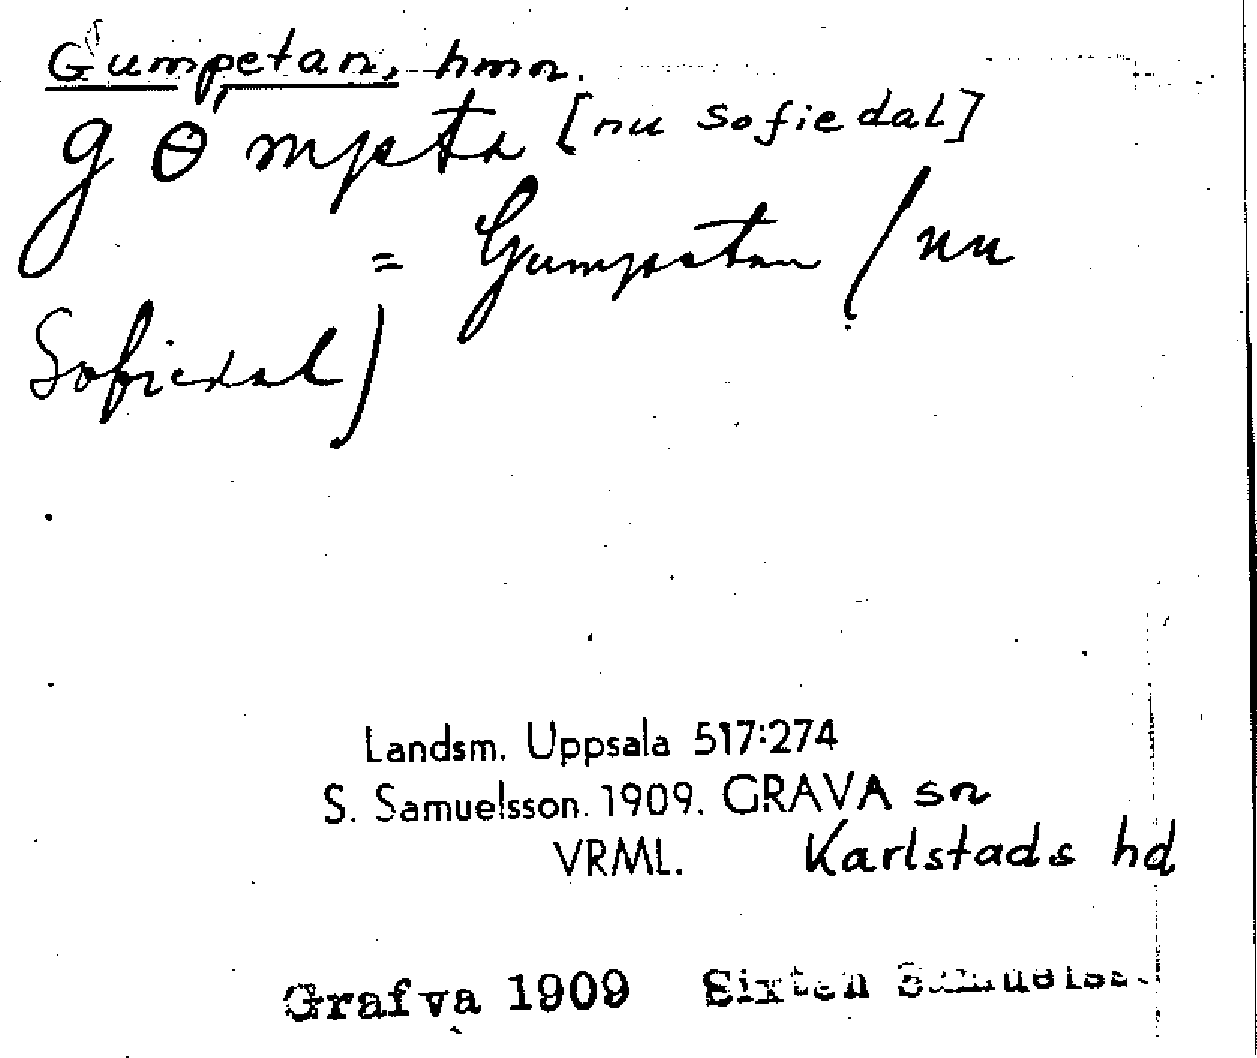 Gumpetan, hmn.
gɵ́mpeta [nu Sofiedal]
= Gumpetan (nu
Sofiedal)
Landsm. Uppsala 517:274
S. Samuelsson. 1909. GRAVA sn
VRML. Karlstads hd
Grafva 1909 Sixten Samuelss.